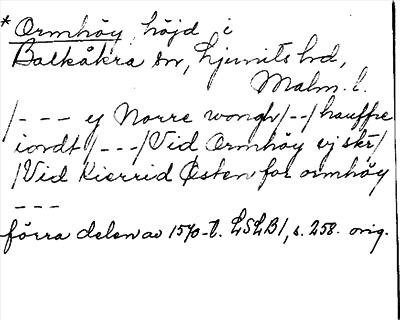 * Ormhöy, höjd i
Balkåkra sn, Ljunits hd,
Malm. l.
/--- ej Norre wongh/--/hauffre
iordt/---/Vid Ormhöy ej skr/
/Vid Kierrid Østen for ormhöy
---
förra delen av 1570-t. LSLB1, s. 258. orig.